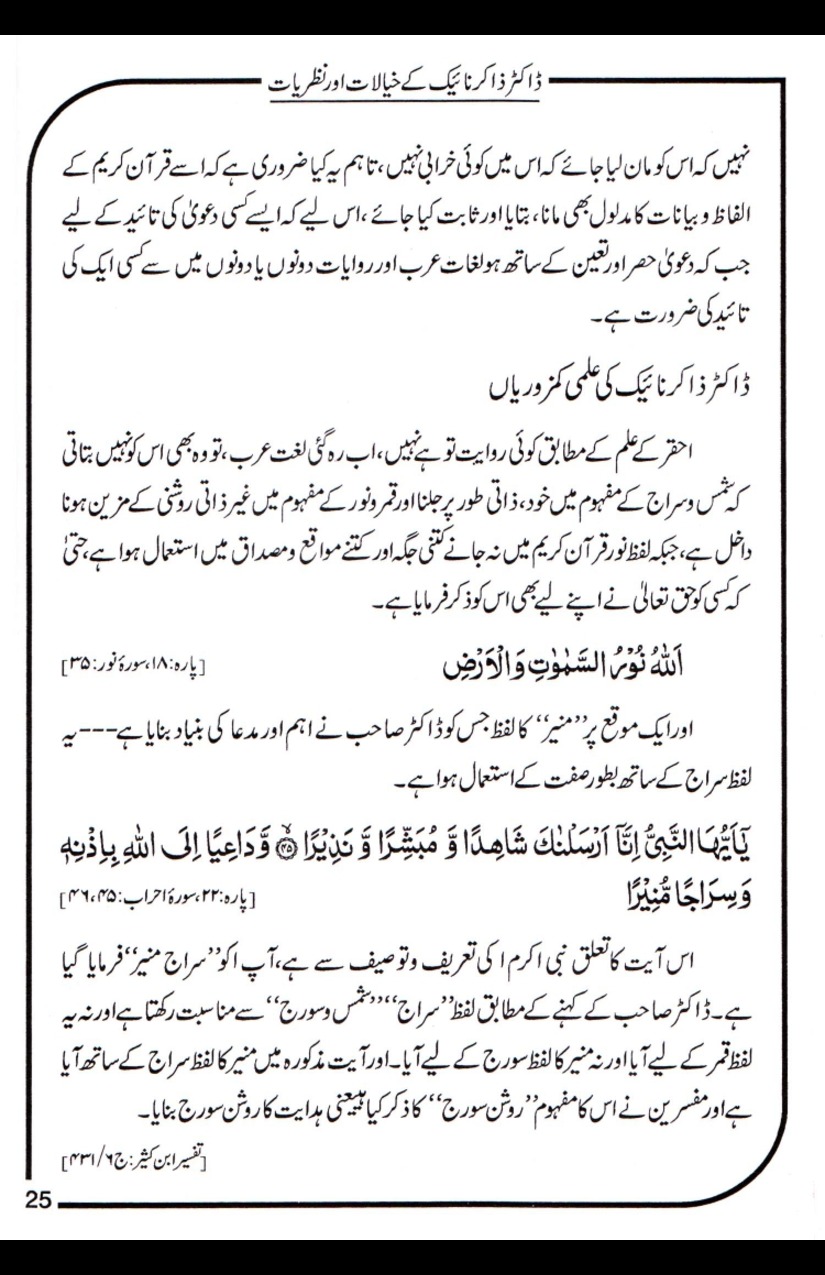 ڈاکٹر ذاکر نائیک کے خیالات اور نظریات
نہیں کہ اس کو مان لیا جائے کہ اس میں کوئی خرابی نہیں، تاہم یہ کیا ضروری ہے کہ اسے قرآن کریم کے
الفاظ و بیانات کا مدلول بھی مانا، بتایا اور ثابت کیا جائے، اس لیے کہ ایسے کسی دعویٰ کی تائید کے لیے
جب کہ دعویٰ حصر اور تعین کے ساتھ ہو لغات عرب اور روایات دونوں یا دونوں میں سے کسی ایک کی
تائید کی ضرورت ہے۔
ڈاکٹر ذاکر نائیک کی علمی کمزوریاں
احقر کے علم کے مطابق کوئی روایت تو ہے نہیں، اب رہ گئی لغت عرب، تو وہ بھی اس کو نہیں بتاتی
کہ شمس وسراج کے مفہوم میں خود، ذاتی طور پر جلنا اور قمر ونور کے مفہوم میں غیر ذاتی روشنی کے مزین ہونا
داخل ہے، جبکہ لفظ نور قرآن کریم میں نہ جانے کتنی جگہ اور کتنے مواقع ومصداق میں استعمال ہوا ہے، حتیٰ
کہ کسی کو حق تعالیٰ نے اپنے لیے بھی اس کو ذکر فرمایا ہے۔
اَللّٰهُ نُوْرُ السَّمٰوٰتِ وَالْاَرْضِ [پارہ:۱۸، سورۂ نور:۳۵]
اور ایک موقع پر ’’منیر‘‘ کا لفظ جس کو ڈاکٹر صاحب نے اہم اور مدعا کی بنیاد بنایا ہے---یہ
لفظ سراج کے ساتھ بطور صفت کے استعمال ہوا ہے۔
يٰۤاَيُّهَا النَّبِيُّ اِنَّاۤ اَرْسَلْنٰكَ شَاهِدًا وَّ مُبَشِّرًا وَّ نَذِيْرًا ﴿۴۵﴾ وَّدَاعِيًا اِلَى اللّٰهِ بِاِذْنِهٖ
وَسِرَاجًا مُّنِيْرًا [پارہ:۲۲، سورۂ احزاب:۴۵،۴۶]
اس آیت کا تعلق نبی اکرم ا کی تعریف وتوصیف سے ہے، آپ ا کو ’’سراج منیر‘‘ فرمایا گیا
ہے۔ ڈاکٹر صاحب کے کہنے کے مطابق لفظ ’’سراج‘‘ ’’شمس وسورج‘‘ سے مناسبت رکھتا ہے اور نہ یہ
لفظ قمر کے لیے آیا اور نہ منیر کا لفظ سورج کے لیے آیا۔ اور آیت مذکورہ میں منیر کا لفظ سراج کے ساتھ آیا
ہے اور مفسرین نے اس کا مفہوم ’’روشن سورج‘‘ کا ذکر کیا ہے یعنی ہدایت کا روشن سورج بنایا۔
[تفسیر ابن کثیر: ج۶/۴۳۱]
25